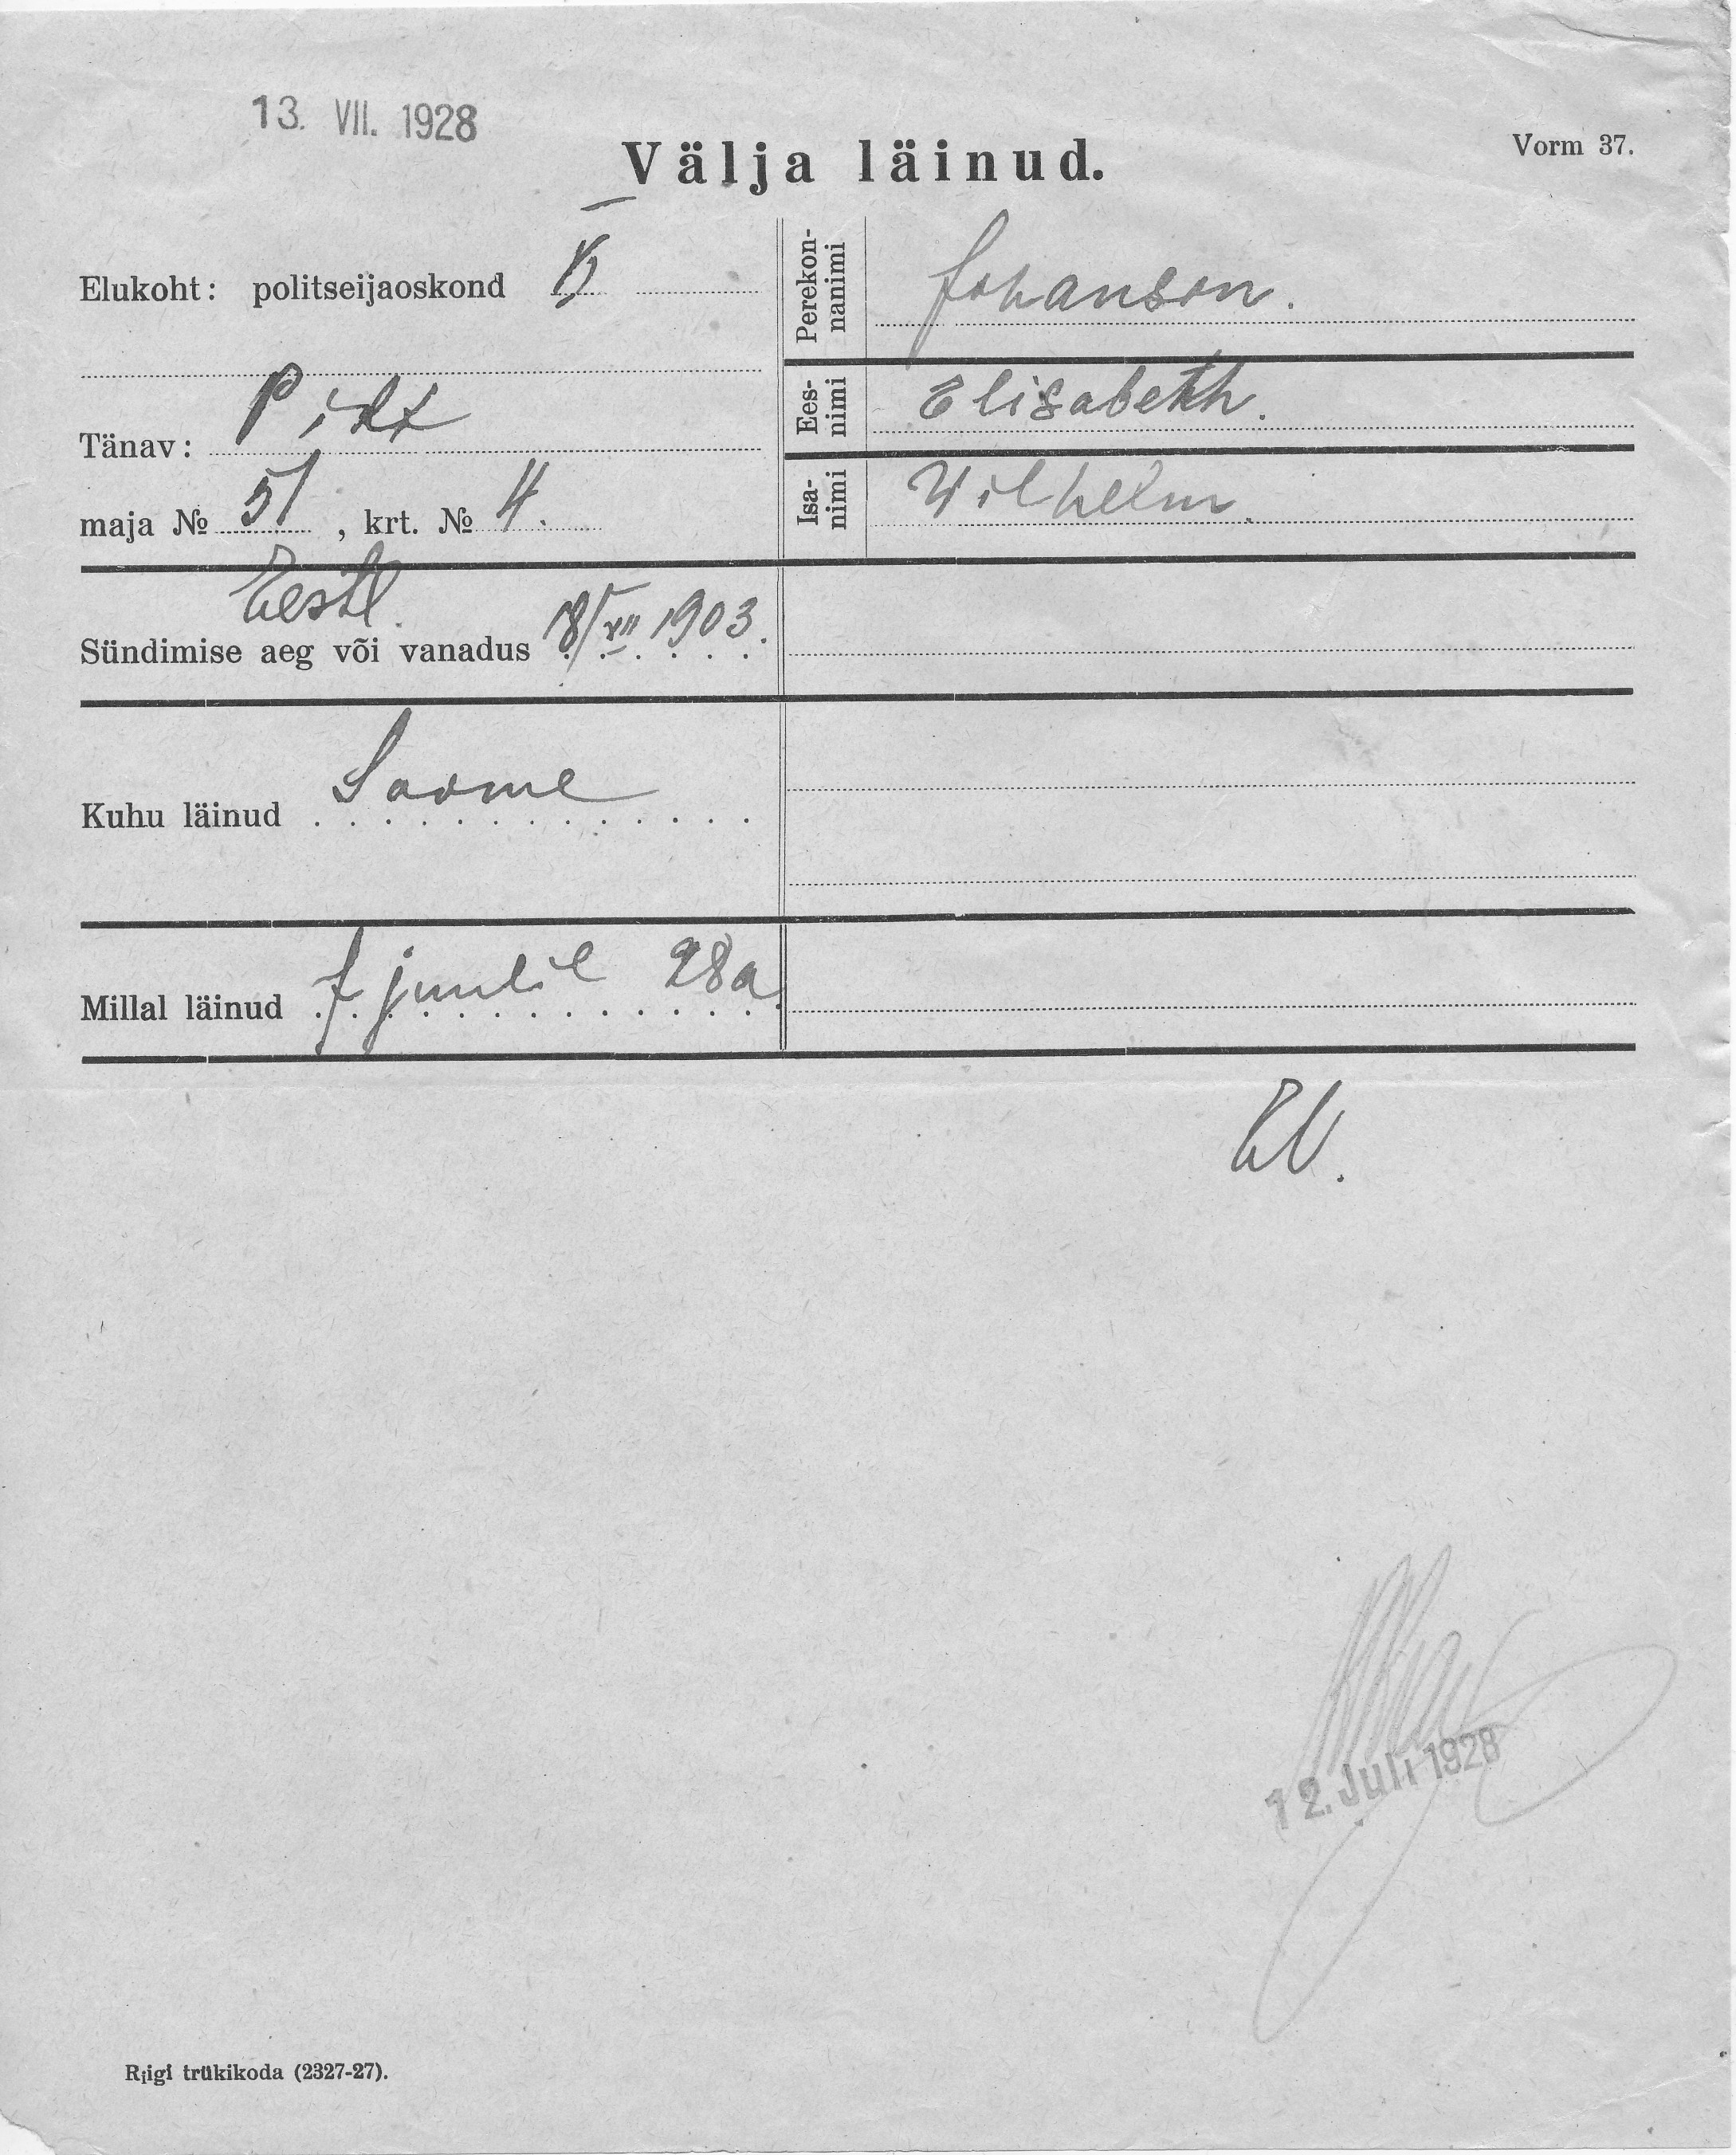 13. VII. 1928
Vorm 37.
Välja läinud.
Elukoht: politseijaoskond
Tänav: Pikk
maja № 51, krt. № 4.
Perekon-
nanimi
Johanson.
Ees-
nimi
Elisabeth.
Isa-
nimi
Wilhelm.
Eestl.
Sündimise aeg või vanadus 18/XII 1903.
Kuhu läinud Soome
Millal läinud 7 juulil 28a.
12. Juli 1928
Riigi trükikoda (2327-27).